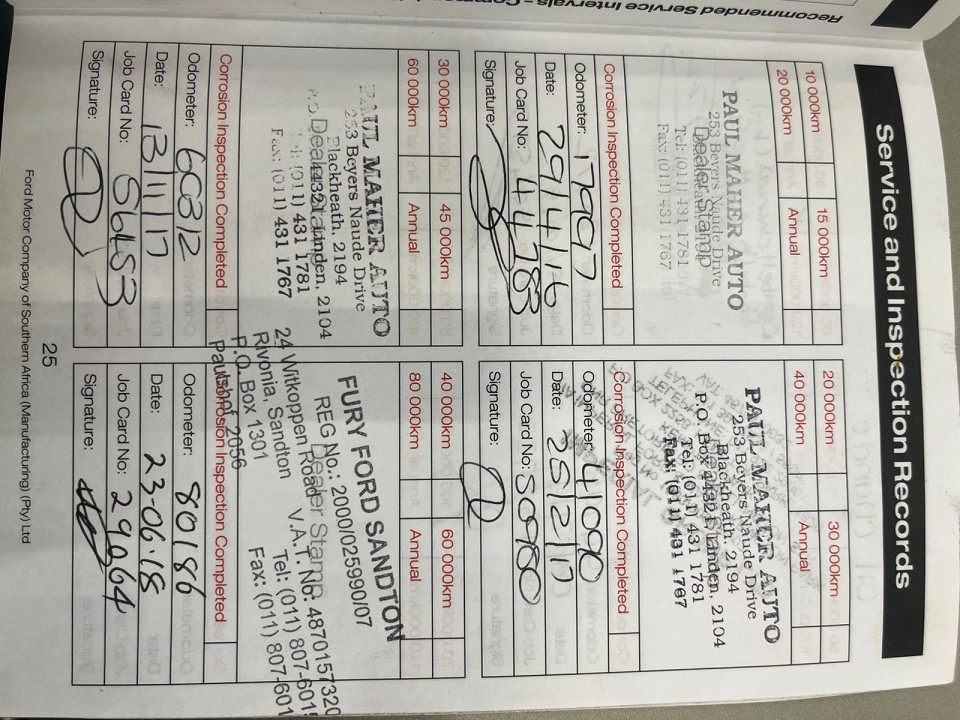 Recommended Service Intervals - Comm
Service and Inspection Records
10 000km
15 000km
20 000km
Annual
PAUL MAHER AUTO
253 Beyers Naude Drive
Dealer Stamp
Tel: (011) 431 1781
Fax: (011) 431 1767
Corrosion Inspection Completed
Odometer: 17997
Date: 29/4/16
Job Card No: 44783
Signature:
20 000km
30 000km
40 000km
Annual
PAUL MAHER AUTO
253 Beyers Naude Drive
Blackheath, 2194
P.O. Box 1432, Islanden, 2104
Tel: (011) 431 1781
Fax: (011) 431 1767
Corrosion Inspection Completed
Odometer: 41090
Date: 25/2/17
Job Card No: 50980
Signature:
30 000km
45 000km
60 000km
Annual
PAUL MAHER AUTO
253 Beyers Naude Drive
Blackheath, 2194
Dealer Stamp
Tel: (011) 431 1781
Fax: (011) 431 1767
Corrosion Inspection Completed
Odometer: 60312
Date: 13/11/17
Job Card No: 56453
Signature:
40 000km
60 000km
80 000km
Annual
FURY FORD SANDTON
REG No.: 2000/025990/07
Dealer Stamp
24 Witkoppen Road V.A.T. No: 4870157320
Rivonia, Sandton Tel: (011) 807-601
P.O. Box 1301 Fax: (011) 807-601
Paulshof 2056
Corrosion Inspection Completed
Odometer: 80186
Date: 23-06-18
Job Card No: 29064
Signature:
25
Ford Motor Company of Southern Africa (Manufacturing) (Pty) Ltd